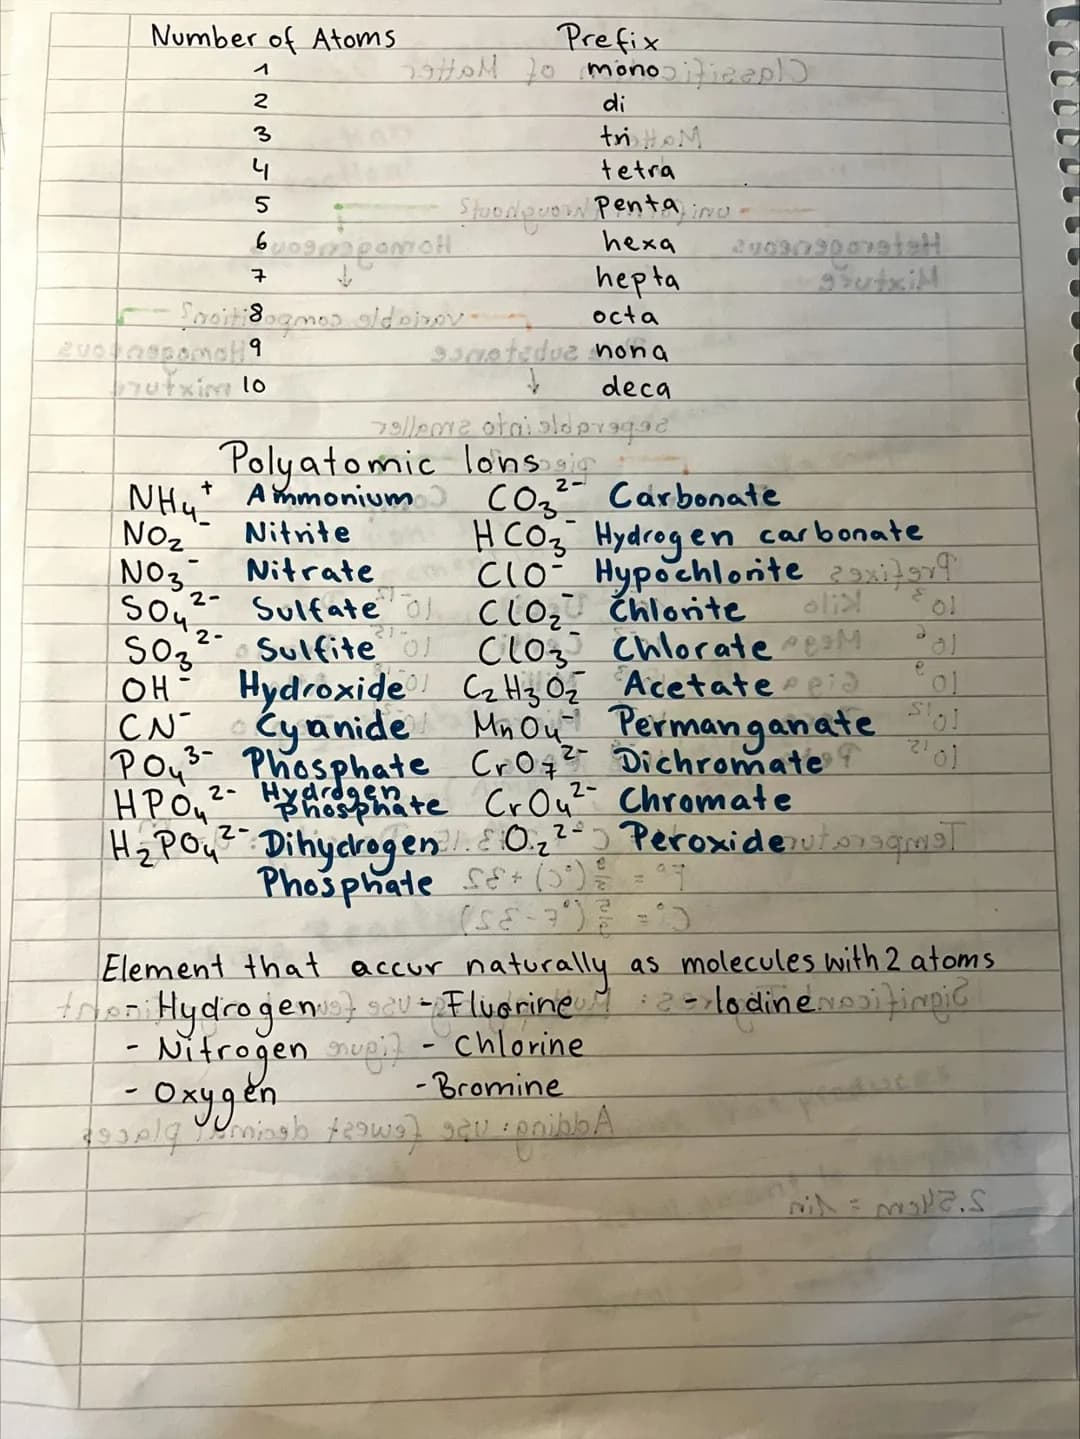 Number of Atoms Prefix
1 mono
2 di
3 tri
4 tetra
5 penta
6 hexa
7 hepta
8 octa
9 nona
10 deca
Polyatomic Ions
NH₄⁺ Ammonium CO₃²⁻ Carbonate
NO₂⁻ Nitrite HCO₃⁻ Hydrogen carbonate
NO₃⁻ Nitrate ClO⁻ Hypochlorite
SO₄²⁻ Sulfate ClO₂⁻ Chlorite
SO₃²⁻ Sulfite ClO₃⁻ Chlorate
OH⁻ Hydroxide C₂H₃O₂⁻ Acetate
CN⁻ Cyanide MnO₄⁻ Permanganate
PO₄³⁻ Phosphate CrO₇²⁻ Dichromate
HPO₄²⁻ Hydrogen Phosphate CrO₄²⁻ Chromate
H₂PO₄²⁻ Dihydrogen O₂²⁻ Peroxide
Phosphate
Element that accur naturally as molecules with 2 atoms
- Hydrogen - Fluorine - Iodine
- Nitrogen - Chlorine
- Oxygen - Bromine